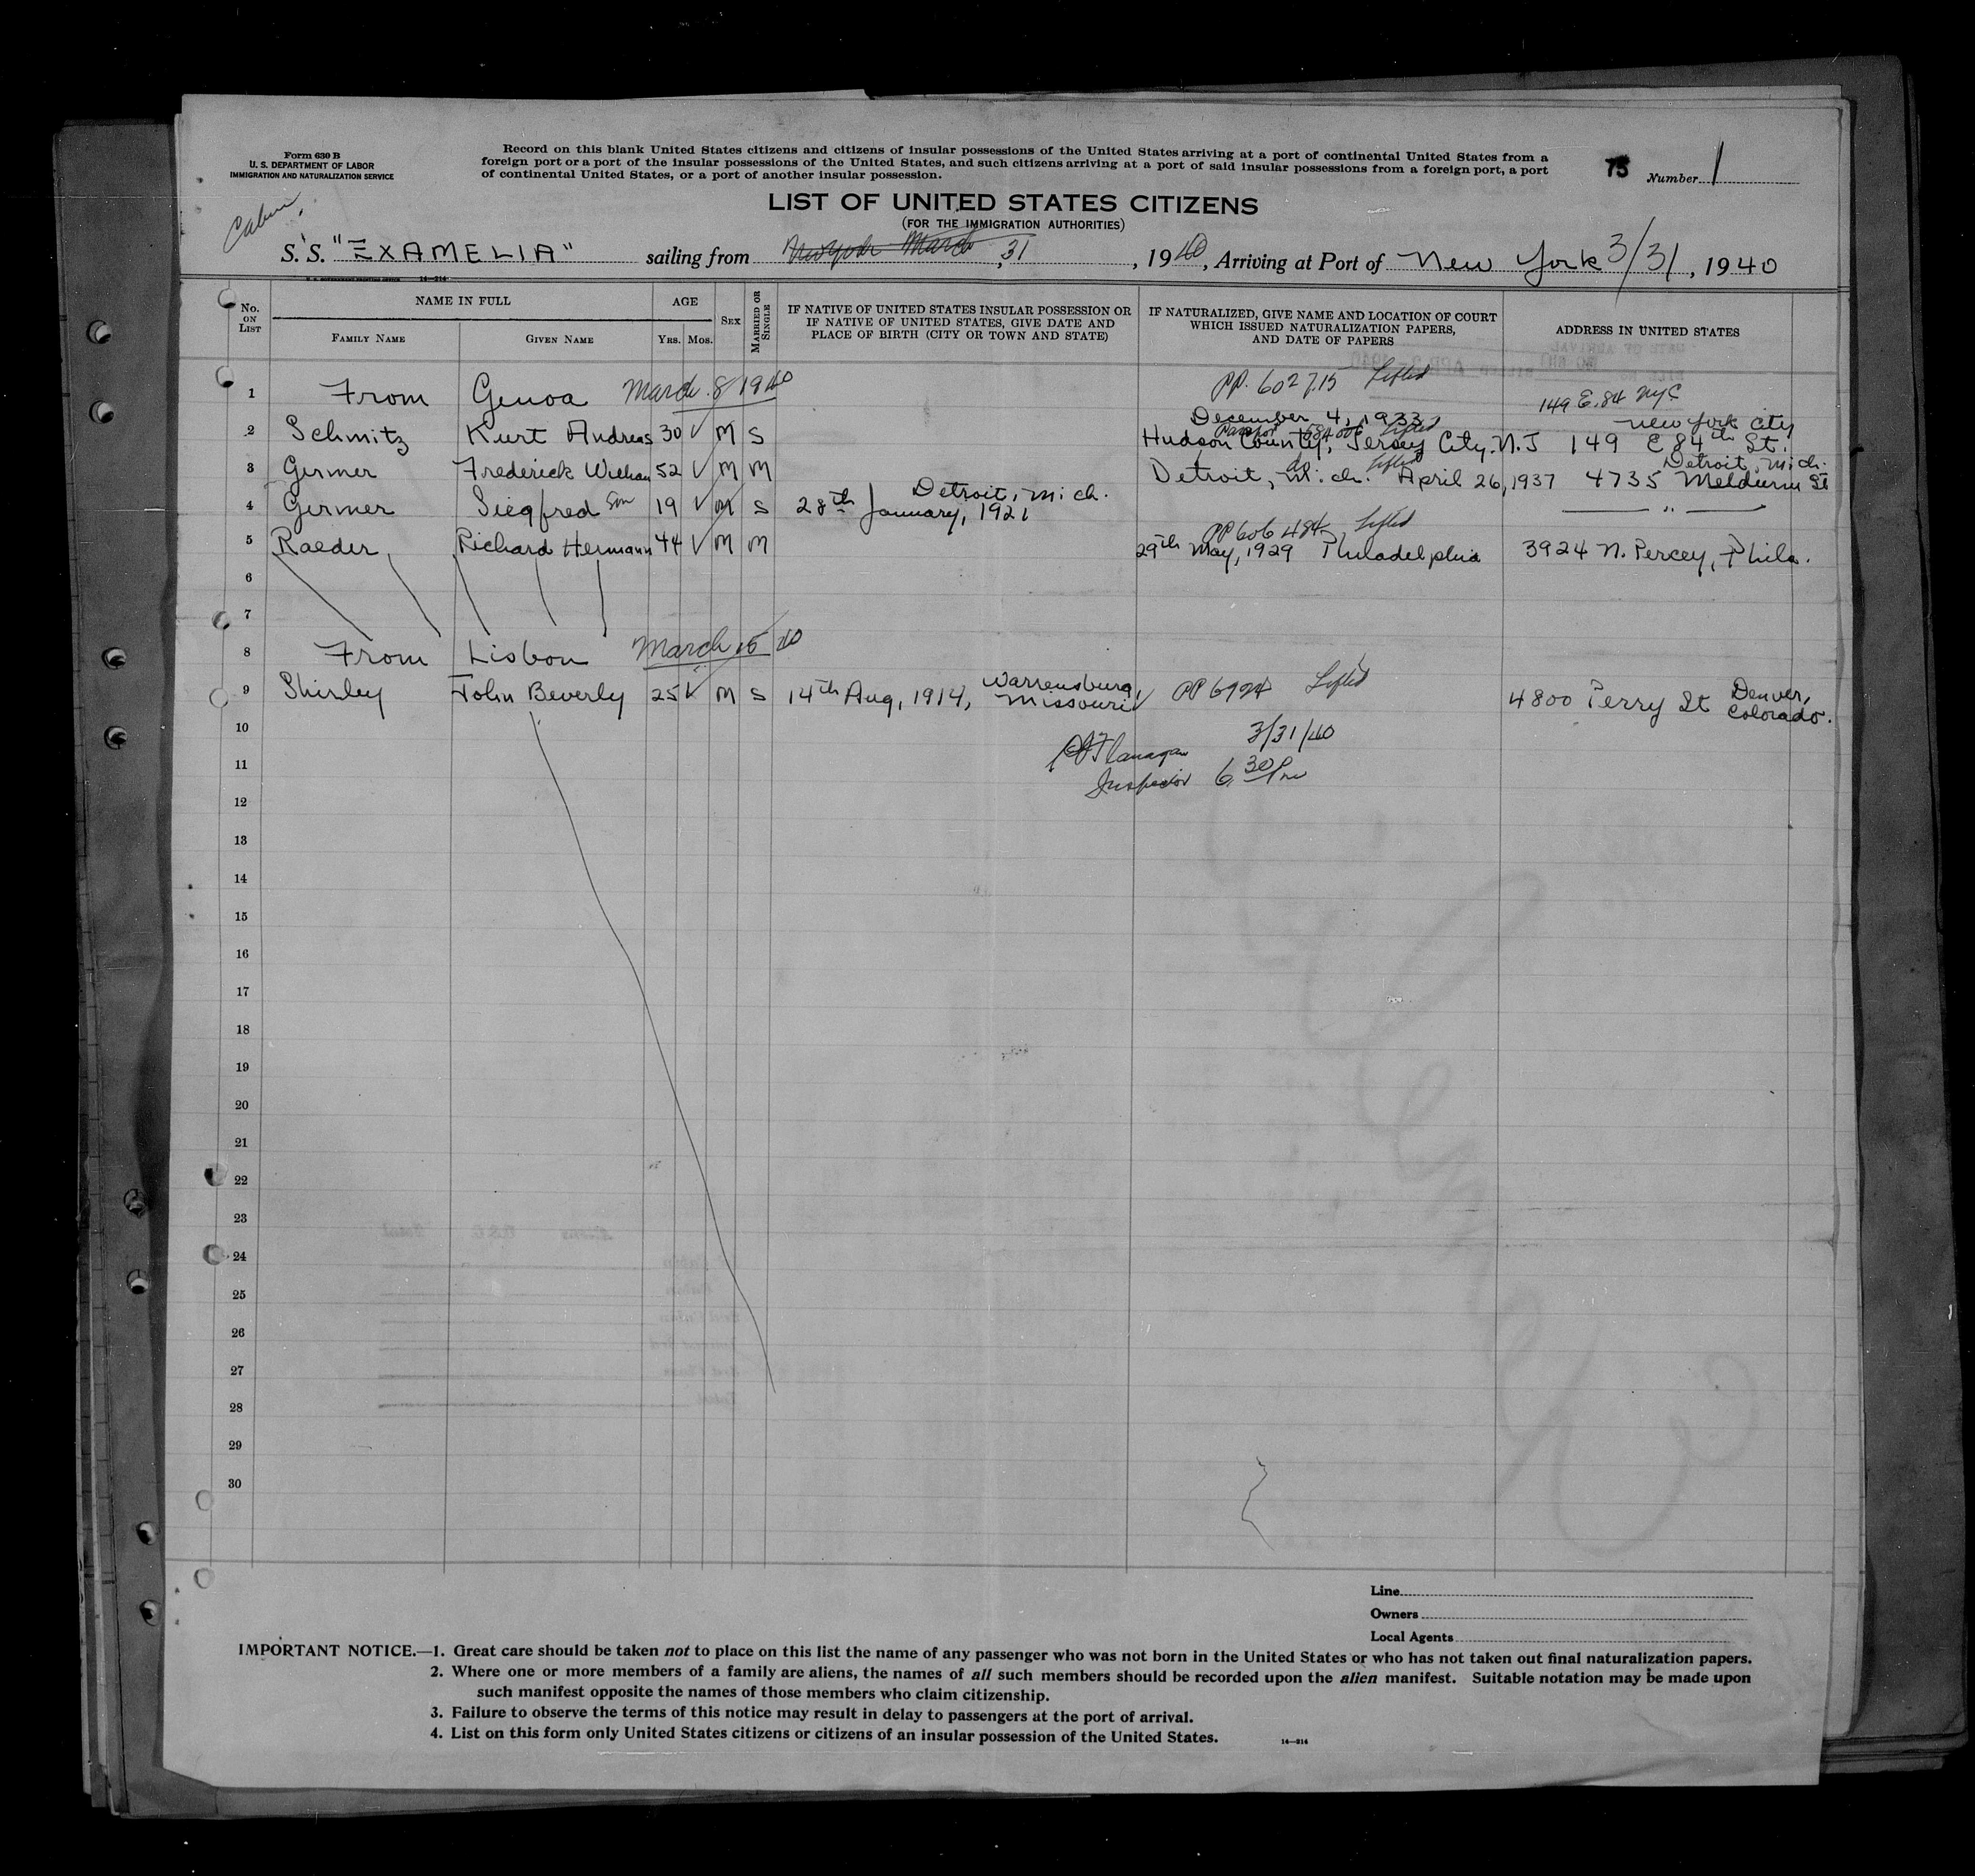 Form 630 B
U. S. DEPARTMENT OF LABOR
IMMIGRATION AND NATURALIZATION SERVICE
Record on this blank United States citizens and citizens of insular possessions of the United States arriving at a port of continental United States from a
foreign port or a port of the insular possessions of the United States, and such citizens arriving at a port of said insular possessions from a foreign port, a port
of continental United States, or a port of another insular possession.
75 Number 1
LIST OF UNITED STATES CITIZENS
(FOR THE IMMIGRATION AUTHORITIES)
Cabin
S.S. "EXAMELIA" sailing from New York March, 31, 1940, Arriving at Port of New York 3/31, 1940
No. ON LIST
NAME IN FULL
FAMILY NAME GIVEN NAME
AGE
YRS. MOS.
SEX
MARRIED OR SINGLE
IF NATIVE OF UNITED STATES INSULAR POSSESSION OR
IF NATIVE OF UNITED STATES, GIVE DATE AND
PLACE OF BIRTH (CITY OR TOWN AND STATE)
IF NATURALIZED, GIVE NAME AND LOCATION OF COURT
WHICH ISSUED NATURALIZATION PAPERS,
AND DATE OF PAPERS
ADDRESS IN UNITED STATES
1 From Genoa March 8 1940 PP. 602715 Lifted 149 E. 84 NYC
December 4, 1933 New York City
2 Schmitz Kurt Andreas 30 M S Hudson County, Jersey City. N.J 149 E 84th St.
Passport Lifted
3 Germer Frederick 52 M M Detroit, Mich. April 26, 1937 4735 Meldurm St
do Lifted Detroit, Mich.
4 Germer Siegfred Son 19 M S 28th January, 1921 Detroit, Mich. "
PP 606484 Lifted
5 Raeder Richard Hermann 44 M M 29th May, 1929 Philadelphia 3924 N. Percey, Phila.
6
7
8 From Lisbon March 15 40
9 Shirley John Beverly 25 M S 14th Aug, 1914, Warrensburg, Missouri PP 6924 Lifted 4800 Perry St Denver, Colorado.
10 3/31/40
11 Flanagan
Inspector 6 30 Pm
12
13
14
15
16
17
18
19
20
21
22
23
24
25
26
27
28
29
30
Line
Owners
Local Agents
IMPORTANT NOTICE.—1. Great care should be taken not to place on this list the name of any passenger who was not born in the United States or who has not taken out final naturalization papers.
2. Where one or more members of a family are aliens, the names of all such members should be recorded upon the alien manifest. Suitable notation may be made upon
such manifest opposite the names of those members who claim citizenship.
3. Failure to observe the terms of this notice may result in delay to passengers at the port of arrival.
4. List on this form only United States citizens or citizens of an insular possession of the United States.
14—214